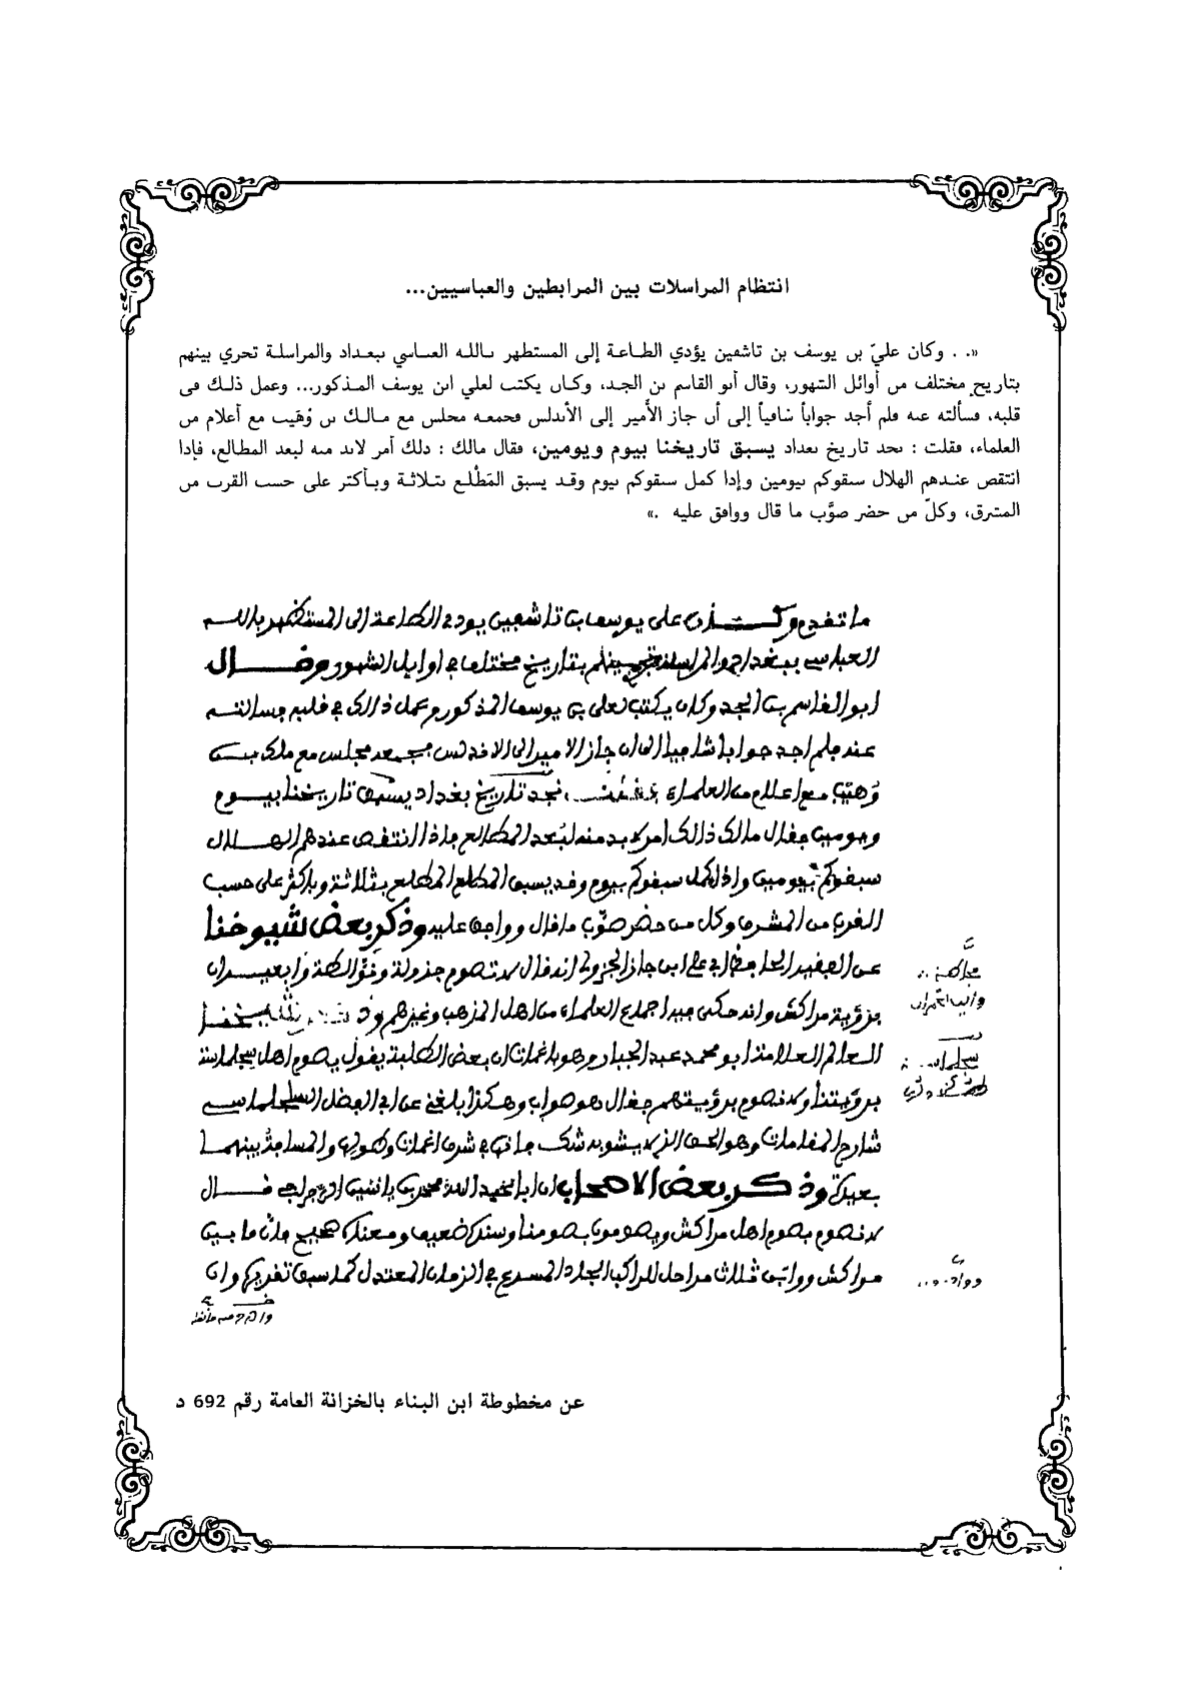 انتظام المراسلات بين المرابطين والعباسيين...
«. . وكان عليّ بن يوسف بن تاشفين يؤدي الطاعة إلى المستظهر بالله العباسي ببغداد والمراسلة تجري بينهم
بتاريخ مختلف من أوائل الشهور، وقال أبو القاسم بن الجد، وكان يكتب لعلي ابن يوسف المذكور... وعمل ذلك في
قلبه، فسألته عنه فلم أجد جواباً شافياً إلى أن جاز الأمير إلى الأندلس فجمعه مجلس مع مالك بن وُهَيب مع أعلام من
العلماء، فقلت : نجد تاريخ بغداد يسبق تاريخنا بيوم ويومين، فقال مالك : ذلك أمر لابد منه لبعد المطالع، فإذا
انتقص عندهم الهلال سبقوكم بيومين وإذا كمل سبقوكم بيوم وقد يسبق المَطْلع بثلاثة وبأكثر على حسب القرب من
المشرق، وكلّ من حضر صوَّب ما قال ووافق عليه .»
ما تقدم وكان على يوسف بن تاشفين يودى الطاعة الى المستظهر بالله
العباسى ببغداد والمراسلة تجرى بينهم بتاريخ مختلف فى اوايل الشهور وقال
ابو القاسم بن الجد وكان يكتب لعلى بن يوسف المذكور وعمل ذالك فى قلبه فسالته
عنه فلم اجد جوابا شافيا الى ان جاز الامير الى الاندلس فجمعه مجلس مع ملك بن
وُهَيْب مع اعلام من العلماء فقلت نجد تاريخ بغداد يسبق تاريخنا بيوم
ويومين فقال مالك ذالك امر لا بد منه لبُعد المطالع فاذا انتقص عندهم الهلال
سبقوكم بيومين واذا كمل سبقوكم بيوم وقد يسبق المطلع المطلع بثلاثة وباكثر على حسب
القرب من المشرق وكل من حضر صوّب ما قال ووافق عليه وذكر بعض شيوخنا
عن الفقيد الحافظ ابى على ابن جاز الجزولى انه قال لا تصوم جزولة
برؤية مراكش وانه حكى فيه اجماع العلماء من اهل المذهب وغيرهم
العالم العلامة ابو محمد عبد الجبار وهو باغمات ان بعض الطلبة يقول يصوم اهل سجلماسة
برؤيتنا ولا نصوم برؤيتهم فقال هو صواب وهكذا بلغنى عن ابى الفضل السجلماسى
شارح المقامات وهو الحق الذى لا يشوبه شك فانها فى شرق اغمات والمسافة بينهما
بعيدة وذكر بعض الاصحاب ان ابا عبد الله محمد بن ياسين قال
لا نصوم بصوم اهل مراكش ويصومون بصومنا وسنده ضعيف ومعناه صحيح فان ما بين
مراكش ثلاث مراحل للراكب المجد المسرع فى الزمان المعتدل كما سبق تقريره وان
عن مخطوطة ابن البناء بالخزانة العامة رقم 692 د